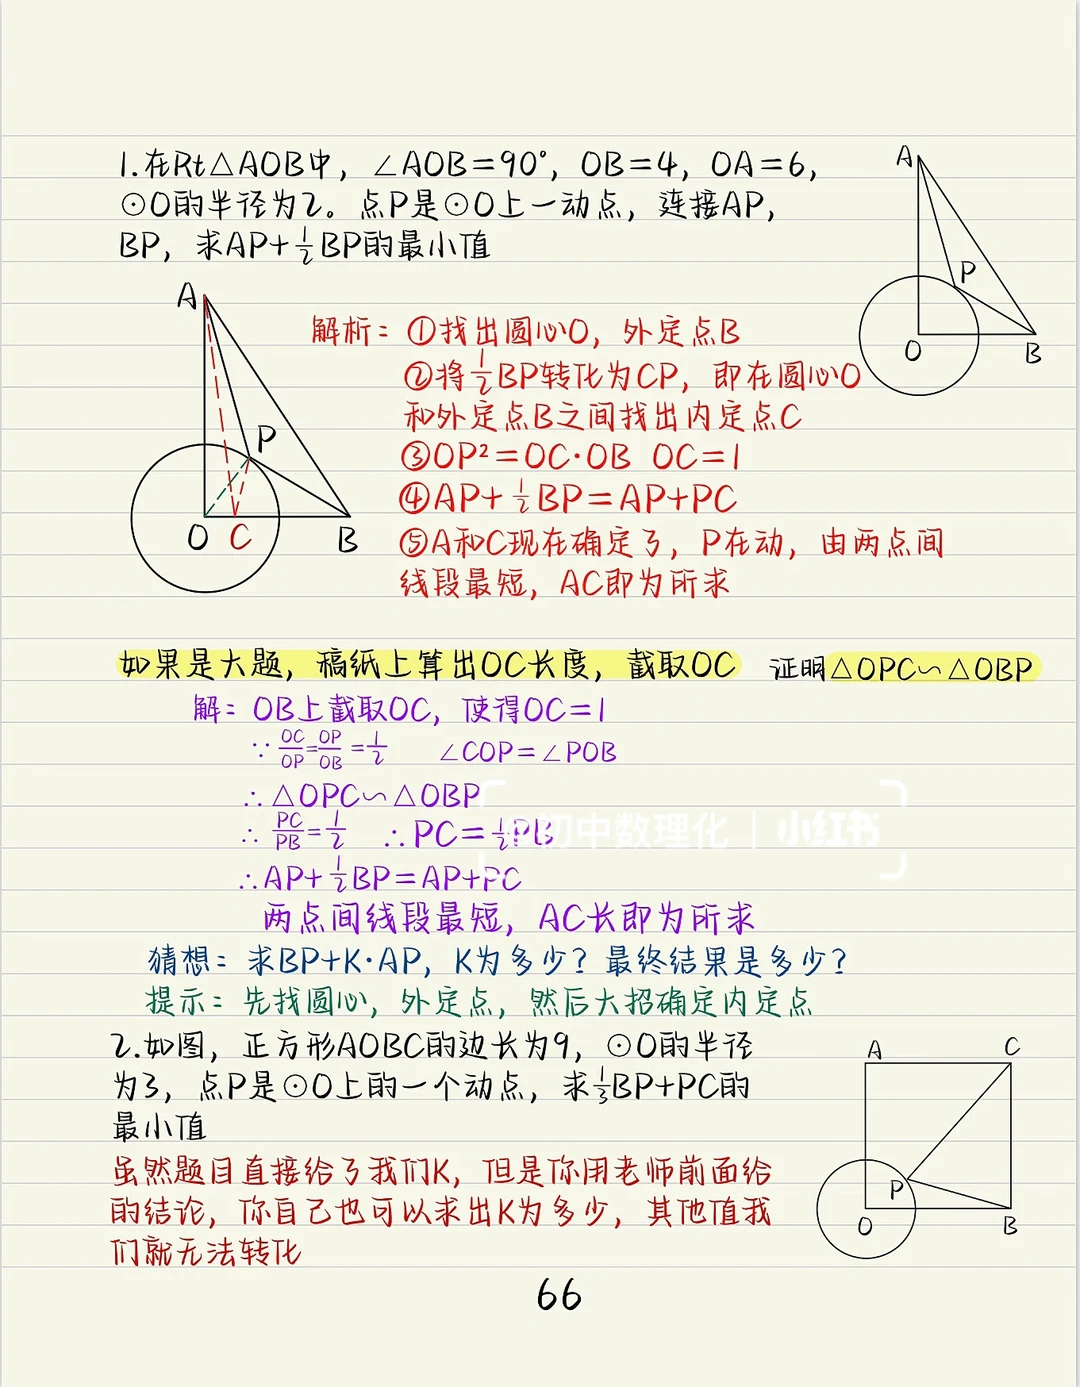 1.在Rt△AOB中，∠AOB=90°，OB=4，OA=6，
⊙O的半径为2。点P是⊙O上一动点，连接AP，
BP，求AP+½BP的最小值
A
P
O
B
A
P
O
C
B
解析：①找出圆心O，外定点B
②将½BP转化为CP，即在圆心O
和外定点B之间找出内定点C
③OP²=OC·OB OC=1
④AP+½BP=AP+PC
⑤A和C现在确定了，P在动，由两点间
线段最短，AC即为所求
如果是大题，稿纸上算出OC长度，截取OC 证明△OPC∽△OBP
解：OB上截取OC，使得OC=1
∵ OC/OP=OP/OB=1/2 ∠COP=∠POB
∴△OPC∽△OBP
∴ PC/PB=1/2 ∴PC=½PB
@初中数理化 | 小红书
∴AP+½BP=AP+PC
两点间线段最短，AC长即为所求
猜想：求BP+K·AP，K为多少？最终结果是多少？
提示：先找圆心，外定点，然后大招确定内定点
2.如图，正方形AOBC的边长为9，⊙O的半径
为3，点P是⊙O上的一个动点，求⅓BP+PC的
最小值
A
C
P
O
B
虽然题目直接给了我们K，但是你用老师前面给
的结论，你自己也可以求出K为多少，其他值我
们就无法转化
66